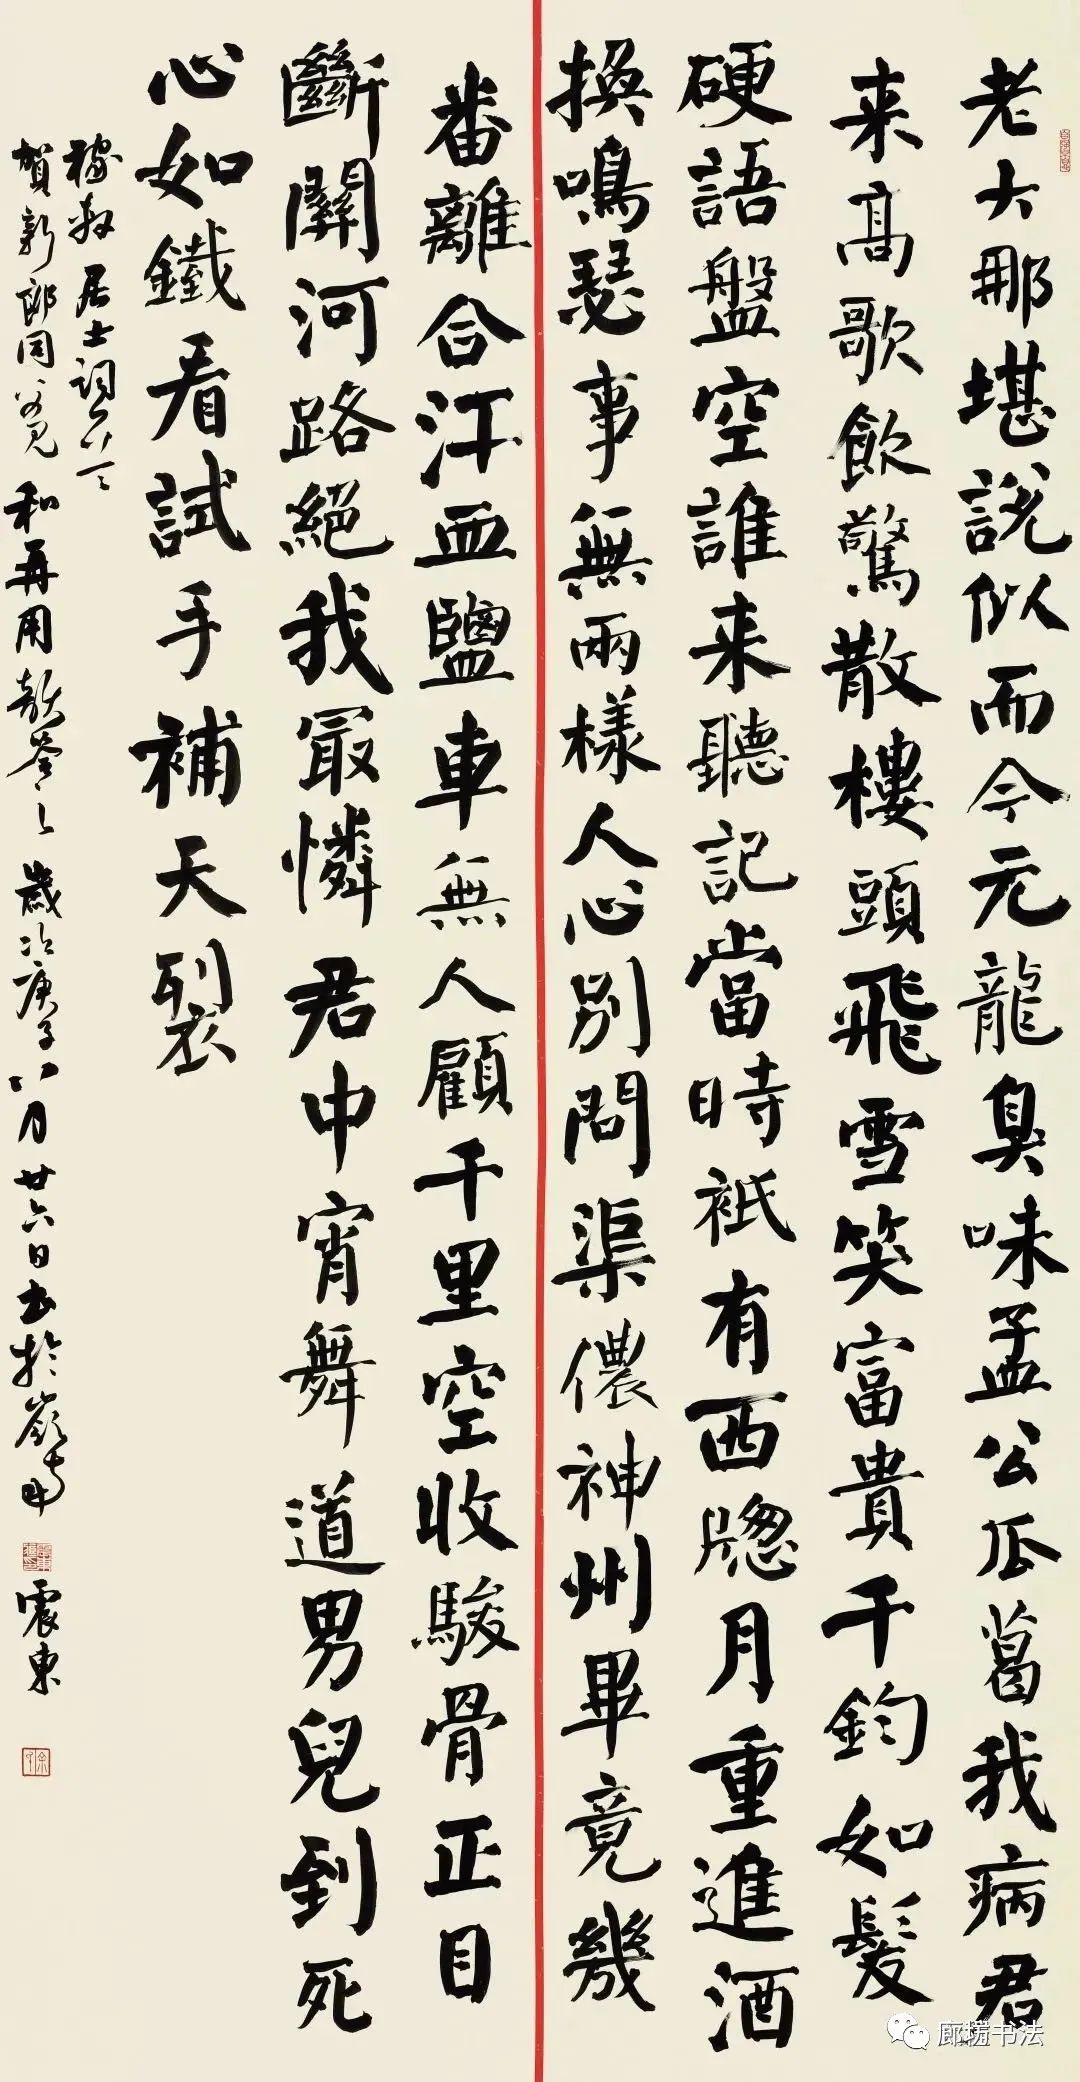 老大那堪説似而今元龍臭味孟公瓜葛我病君
来高歌飲驚散樓頭飛雪笑富貴千鈞如髮
硬語盤空誰来聽記當時衹有西牕月重進酒
換鳴瑟事無兩樣人心別問渠儂神州畢竟幾
番離合汗血鹽車無人顧千里空收駿骨正目
斷關河路絕我最憐君中宵舞道男兒到死
心如鐵看試手補天裂
稼軒居士詞
賀新郎同父見和再用韻答之歲次庚子八月廿六日書於
震東
廊壩书法